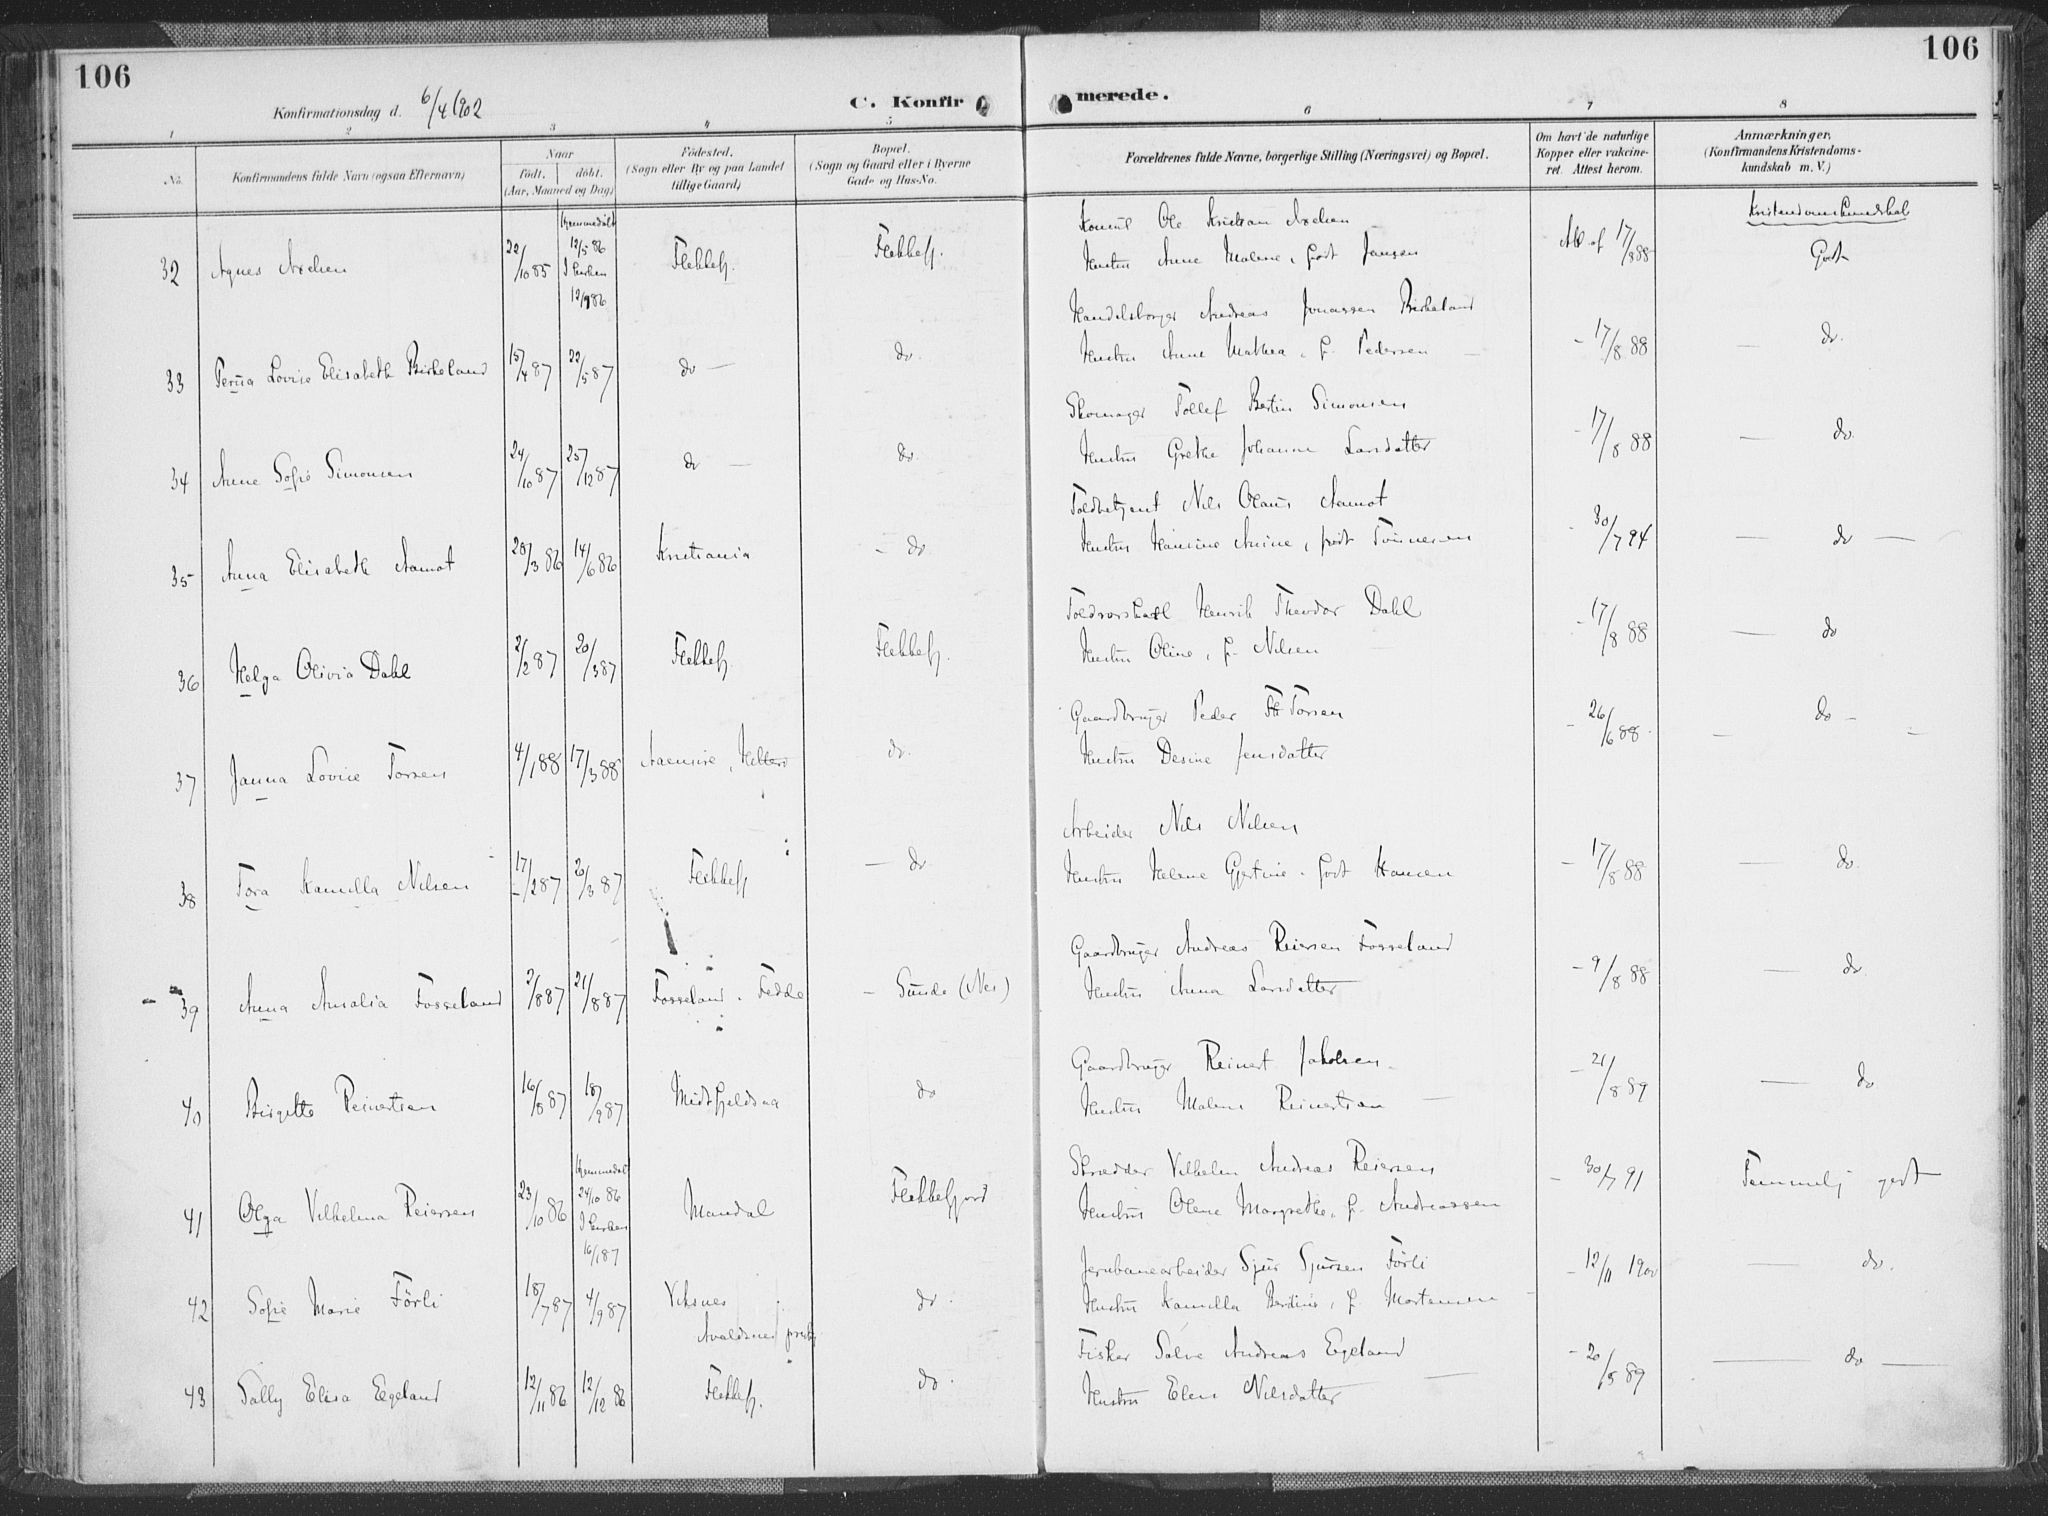 106
106
Konfirmationsdag d. 6/4 1902
C. Konfirmerede.
1 2 3 4 5 6 7 8
No.
Konfirmandens fulde Navn (ogsaa Efternavn)
Naar
födt. döbt.
(Aar, Maaned og Dag)
Födested.
(Sogn eller By og paa Landet
tillige Gaard)
Bopæl.
(Sogn og Gaard eller i Byerne
Gade og Hus-No.
Forældrenes fulde Navne, borgerlige Stilling (Næringsvei) og Bopæl.
Om havt de naturlige
Kopper eller vakcine-
ret. Attest herom.
Anmærkninger.
(Konfirmandens Kristendoms-
kundskab m. V.)
Kristendomskundskab
32 Agnes Axelsen 22/10 85 Hjemmedöbt 12/5 86 I Kirken 12/9 86 Flekkefj. Flekkefj.
Konsul Ole Kristian Axelsen
Hustru Anne Malene, født Jansen
Att. af 17/8 88 Godt
33 Perna Lovise Elisabeth Birkeland 15/4 87 22/5 87 do — do.
Handelsborger Andreas Jonassen Birkeland
Hustru Anne Mathea, f. Pedersen
- 17/8 88 — do.
34 Anne Sofie Simonsen 24/10 87 25/12 87 do — do.
Skomager Tollef Bertin Simonsen
Hustru Grethe Johanne Larsdatter
- 17/8 88 — do.
35 Anna Elisabeth Aamot 28/3 86 14/6 86 Kristiania - do
Toldbetjent Nils Olaus Aamot
Hustru Hansine Anine, født Tönnesen
- 30/7 94 — do —
36 Helga Olivia Dahl 2/2 87 20/3 87 Flekkefj. Flekkefj.
Henrik Theodor Dahl
Hustru Oline, f. Nilsen
- 17/8 88 — do
37 Janna Lovise Torsen 4/1 88 17/3 88 Aaensire, do.
Gaardbruger Peder Torsen
Hustru Desine Jensdatter
- 26/6 88. — do -
38 Tora Kamilla Nilsen 17/2 87 20/3 87 Flekkefj — do
Arbeider Nils Nilsen
Hustru Helene Gjertine, født Hansen
- 17/8 88 — do.
39 Anna Amalia Fosseland 2/8 87 21/8 87 Fosseland. Fedde - Sunde (Nes)
Gaardbruger Andreas Reiersen Fosseland
Hustru Anna Larsdatter
- 9/8 88 — do
40 Birgitte Reinertsen 16/8 87 18/9 87 Midtfjeldsaa do
Gaardbruger Reinert Jakobsen
Hustru Malene Reinertsen
- 21/8 89 — do
41 Olga Vilhelmia Reiersen 23/10 86 Hjemmedöbt 24/10 86 I Kirken 16/1 87 Mandal Flekkefjord
Skrædder Vilhelm Andreas Reiersen
Hustru Olene Margrethe, f. Andreassen
- 30/7 91 Temmelig godt
42 Sofie Marie Förli 18/7 87 4/9 87 Viksnes do.
Avaldsnes
Jernbanearbeider Sjur Sjursen Förli
Hustru Kamilla Berdine, f. Mortensen
- 12/11 1900 — do.
43 Sally Elisa Egeland 12/11 86 12/12 86 Flekkefj. do.
Fisker Salve Andreas Egeland
Hustru Elen Nilsdatter
- 20/5 89 — do —